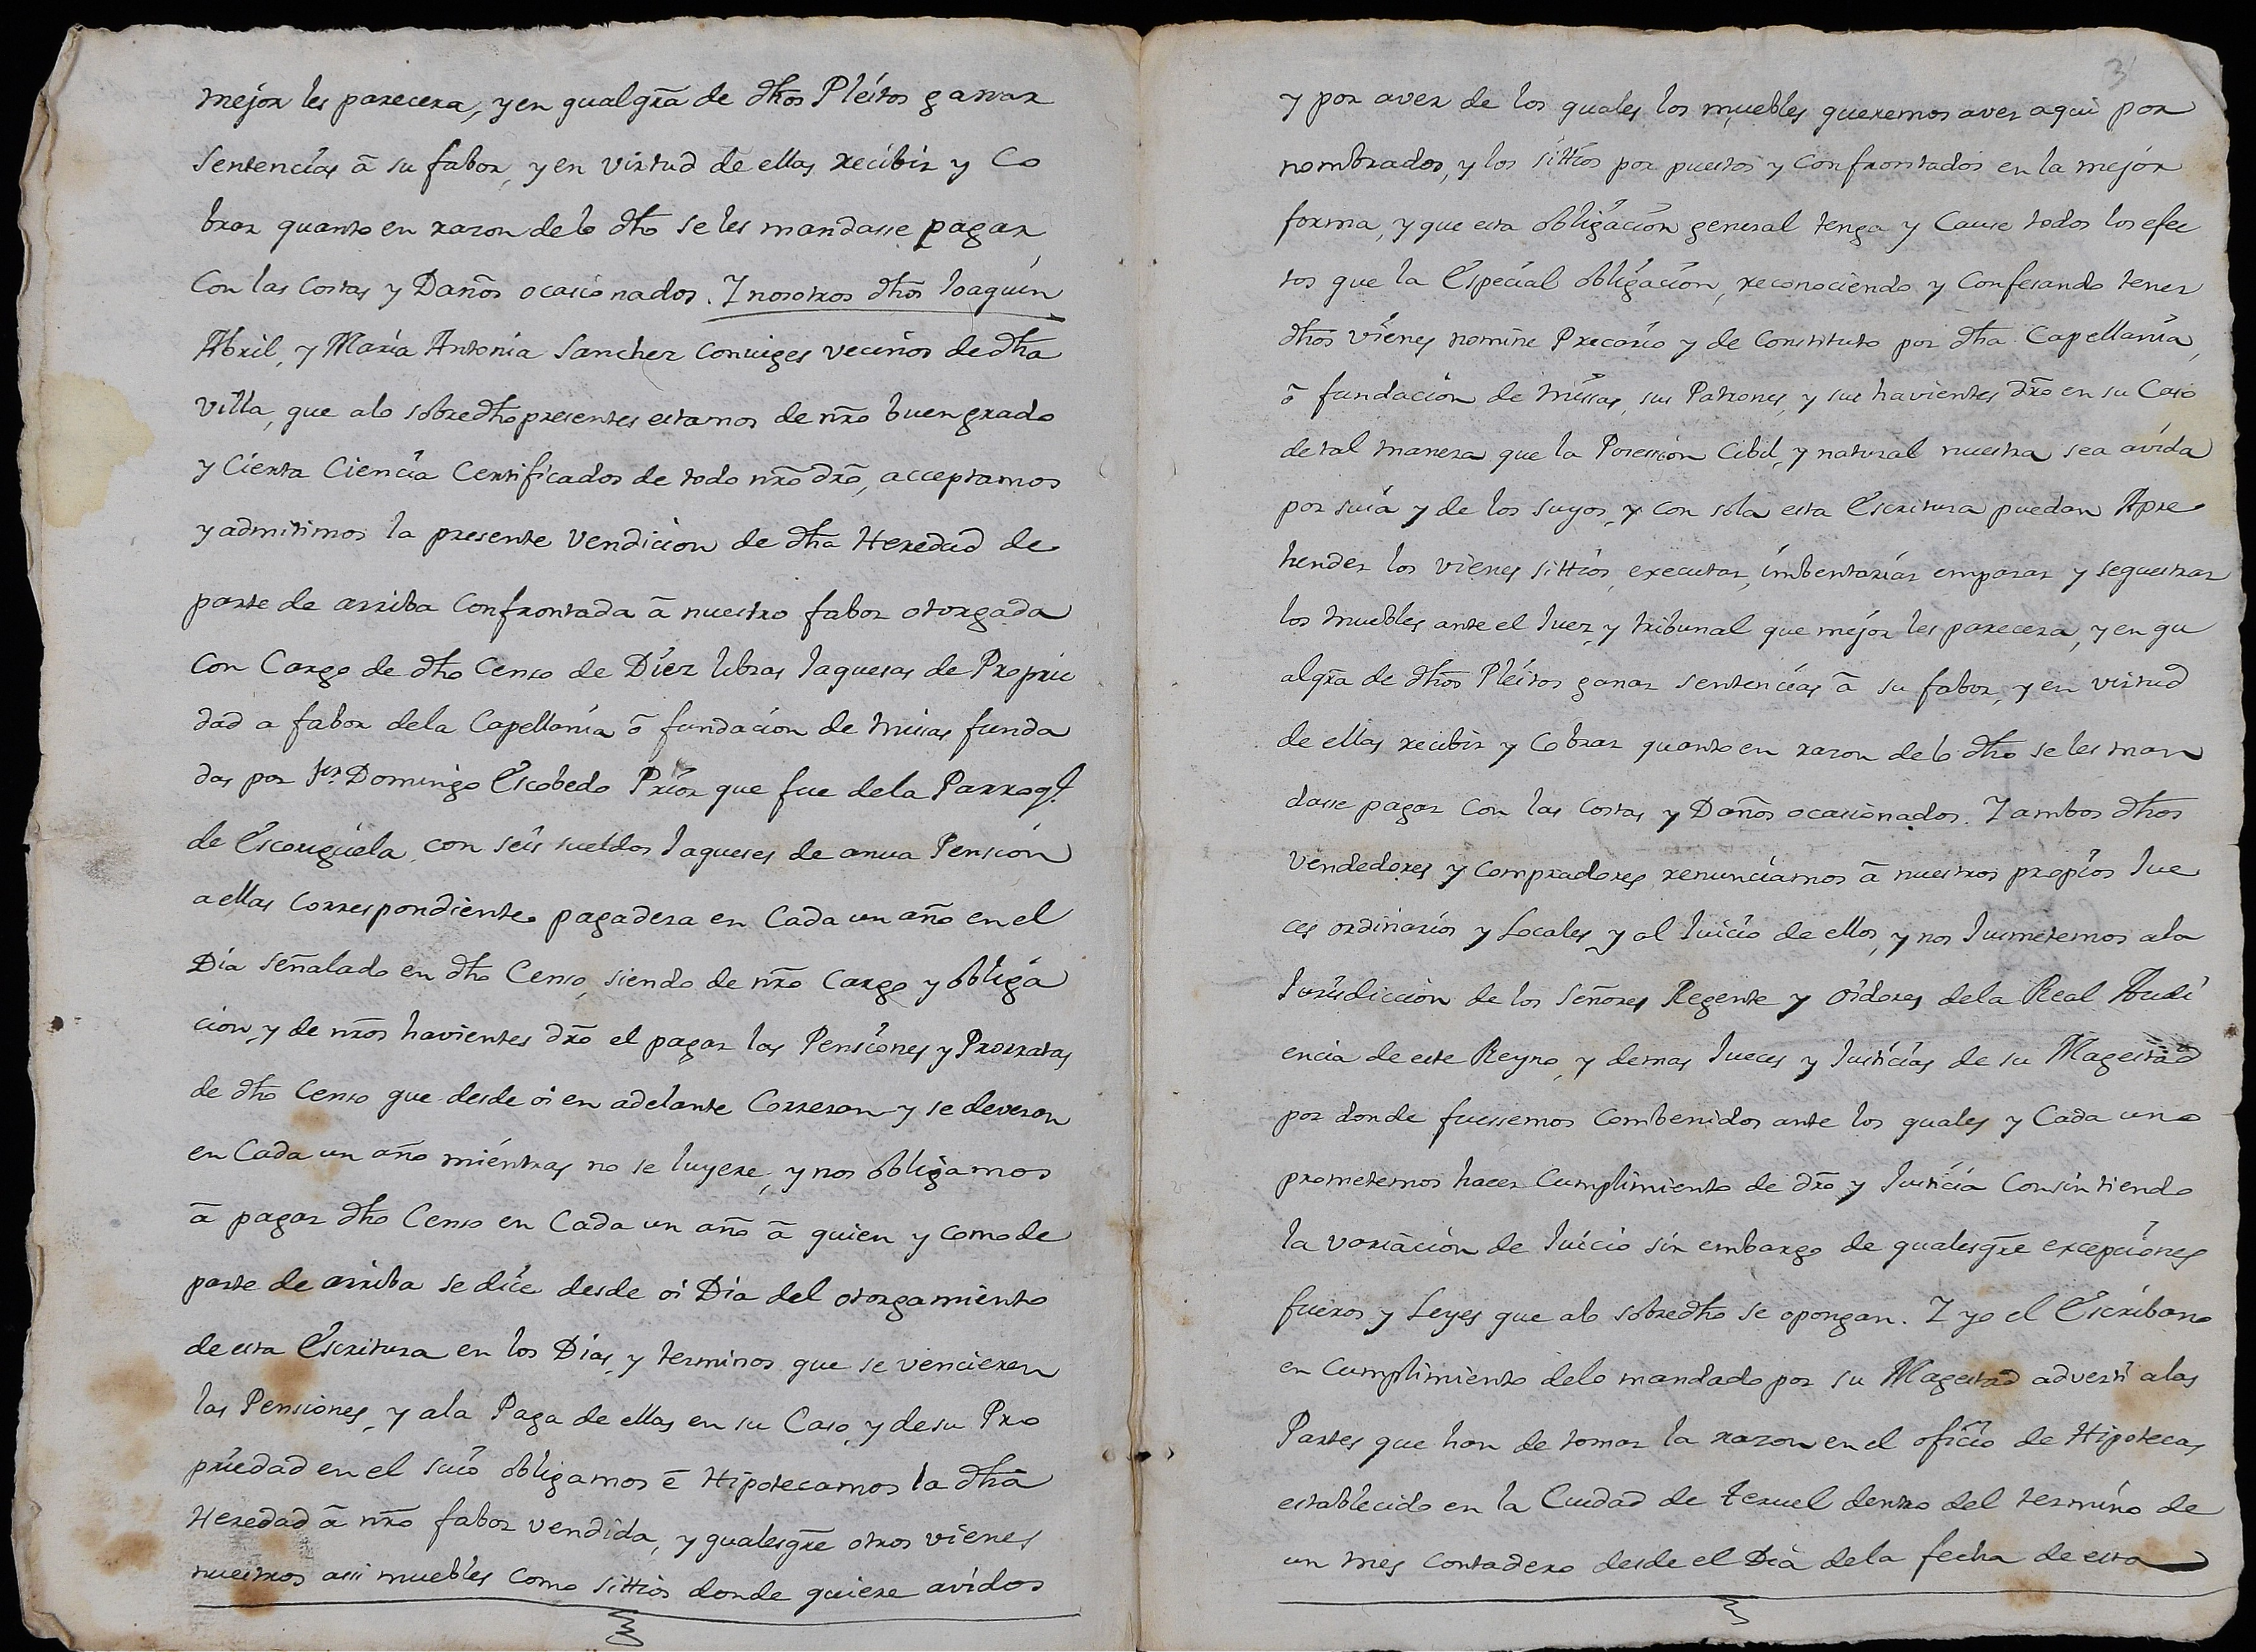 mejor les parecera, y en qualqr̃a de dh̃os Pleitos ganar
sentencias â su fabor, y en virtud de ellas recibir y Co
brar quanto en razon de lo dh̃o se les mandasse pagar
Con las Costas y Daños ocasionados. Y nosotros dh̃os Ioaquin
Abril, y Maria Antonia Sanchez Coniuges vecinos de dh̃a
villa, que alo sobredh̃o presentes estamos de nr̃o buen grado
y Cierta Ciencia Certificados de todo nr̃o dr̃o, acceptamos
y admitimos la presente Vendicion de dh̃a Heredad de
parte de arriba Confrontada â nuestro fabor otorgada
Con Cargo de dh̃o Censo de Diez libras Iaquesas de Proprie
dad a fabor dela Capellania ô fundacion de Missas funda
das por Domingo Escobedo Prior que fue dela Parroql.
de Escoriguela, con seis sueldos Iaqueses de anua Pension
a ellas Correspondiente pagadera en Cada un año en el
Dia señalado en dh̃o Censo, siendo de nr̃o Cargo y obliga
cion, y de nr̃os havientes dr̃o el pagar las Pensiones y Prorratas
de dh̃o Censo que desde oi en adelante Correran y se deveran
en Cada un año mientras no se luyere, y nos obligamos
â pagar dh̃o Censo en Cada un año â quien y como de
parte de arriba se dice desde oi Dia del otorgamiento
de esta Escritura en los Dias, y terminos que se vencieren
las Pensiones, y ala Paga de ellas en su Caso, y de su Pro
priedad en el suio obligamos ê Hipotecamos la dh̃a
Heredad â nr̃o fabor vendida, y qualesqr̃e otros vienes
nuestros assi muebles Como sittios donde quiere avidos
3
y por aver de los quales los muebles queremos aver aqui por
nombrados, y los sittios por puestos y Confrontados en la mejor
forma, y que esta obligacion general tenga y Cause todos los efec
tos que la Especial obligacion, reconociendo y Confesando tener
dh̃os vienes nomine Precario y de Constituto por dh̃a Capellania,
ô fundacion de Missas, sus Patrones, y sus havientes dr̃o en su Caso
de tal manera que la Posession Cibil, y natural nuestra sea avida
por suia y de los suyos, y con sola esta Escritura puedan Apre
hender los vienes sittios, executar, imbentariar emparar y sequestrar
los muebles ante el Iuez, y tribunal que mejor les parecera, y en qu
alqr̃a de dh̃os Pleitos ganar sentencias â su fabor, y en virtud
de ellas recibir y Cobrar quanto en razon de lo dh̃o se les man
dasse pagar Con las Costas y Daños ocasionados. Y ambos dh̃os
Vendedores y Compradores renunciamos â nuestros propios Iue
ces ordinarios y Locales y al Iuicio de ellos, y nos Iusmetemos ala
Iurisdiccion de los Señores Regente y Oidores dela Real Audi
encia de este Reyno, y demas Iueces y Iusticias de su Magestad
por donde fuessemos Combenidos ante los quales y Cada uno
prometemos hacer Cumplimiento de dr̃o y Iusticia Consintiendo
la variacion de Iuicio sin embargo de qualesqr̃e excepciones
fueros y Leyes que alo sobredh̃o se opongan. Y yo el Escribano
en Cumplimiento delo mandado por su Magestad adverti alas
Partes que han de tomar la razon en el oficio de Hipotecas
establecido en la Ciudad de teruel dentro del termino de
un mes Contadero desde el Dia dela fecha de esta